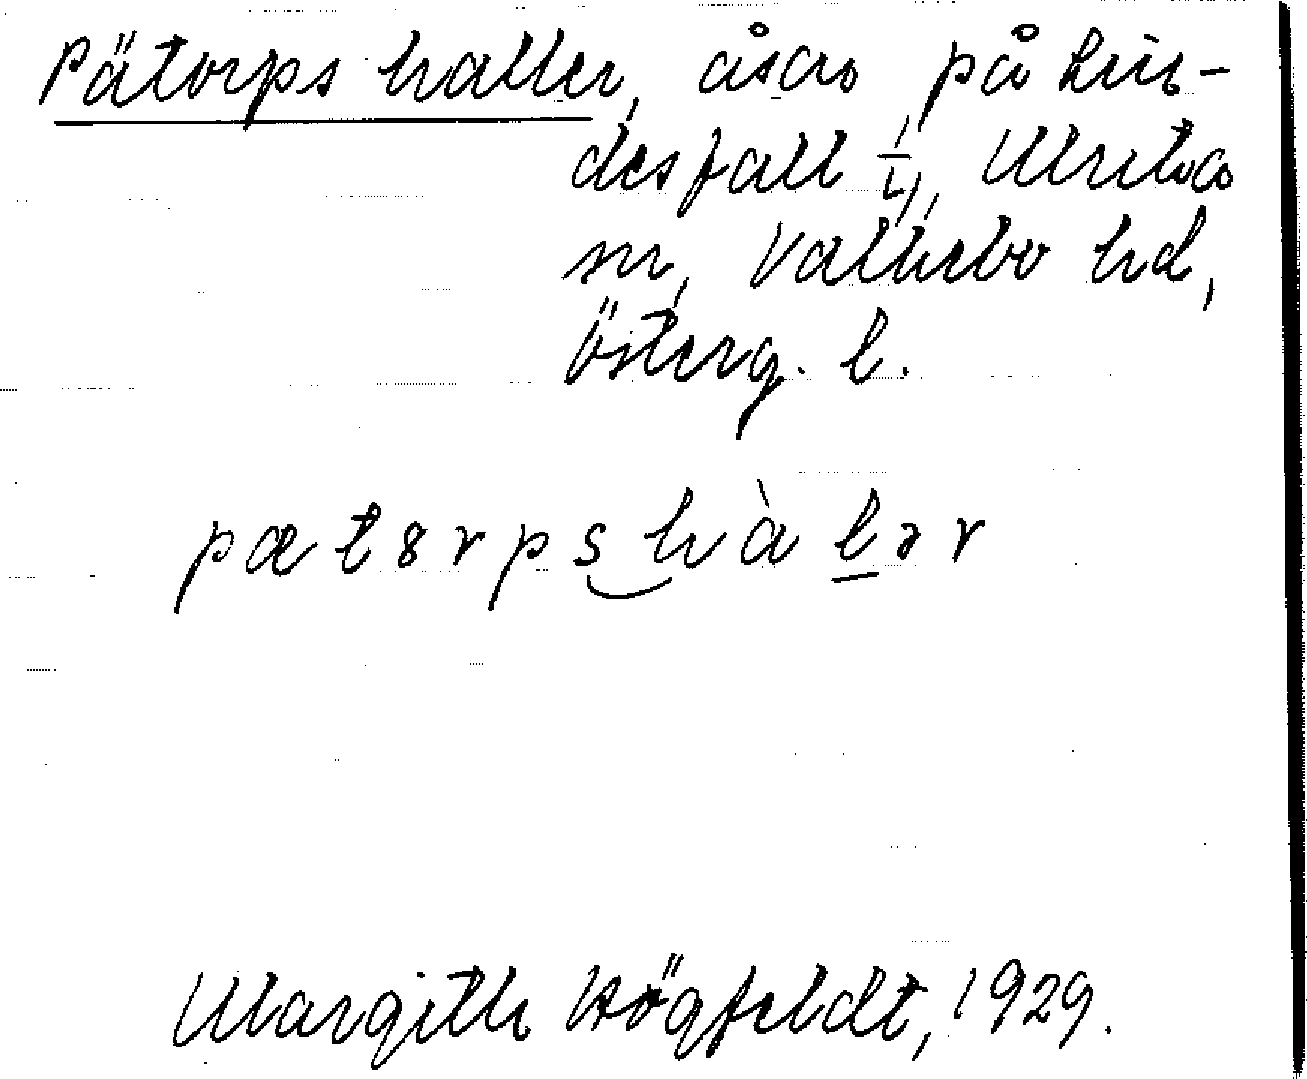 Pätorps haller, åsar på Lin-
desfall 1/4, Ulrika
sn, Valkebo hd,
Österg. l.
pæt8rpshàlər
Margith Högfeldt, 1929.